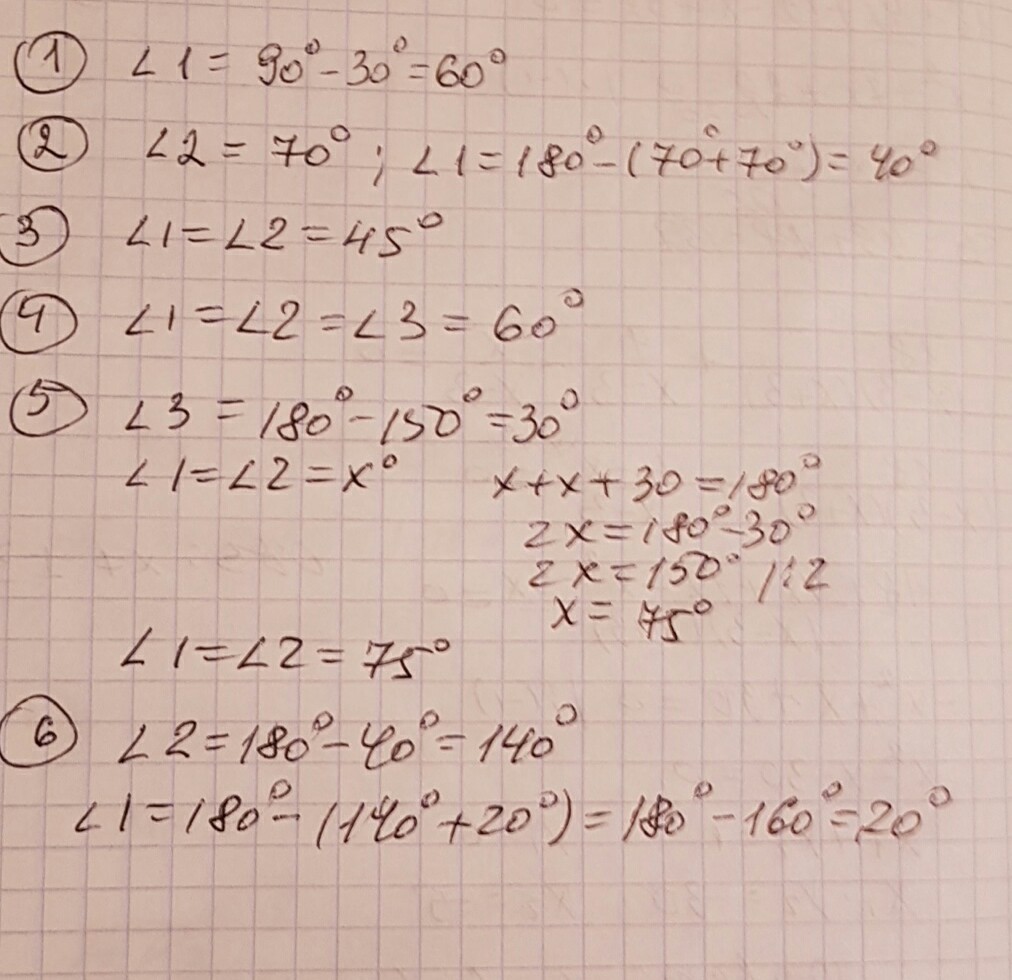 ① ∠1 = 90° - 30° = 60°
② ∠2 = 70° ; ∠1 = 180° - (70° + 70°) = 40°
③ ∠1 = ∠2 = 45°
④ ∠1 = ∠2 = ∠3 = 60°
⑤ ∠3 = 180° - 150° = 30°
∠1 = ∠2 = x° x + x + 30 = 180°
2x = 180° - 30°
2x = 150° /:2
x = 75°
∠1 = ∠2 = 75°
⑥ ∠2 = 180° - 40° = 140°
∠1 = 180° - (140° + 20°) = 180° - 160° = 20°